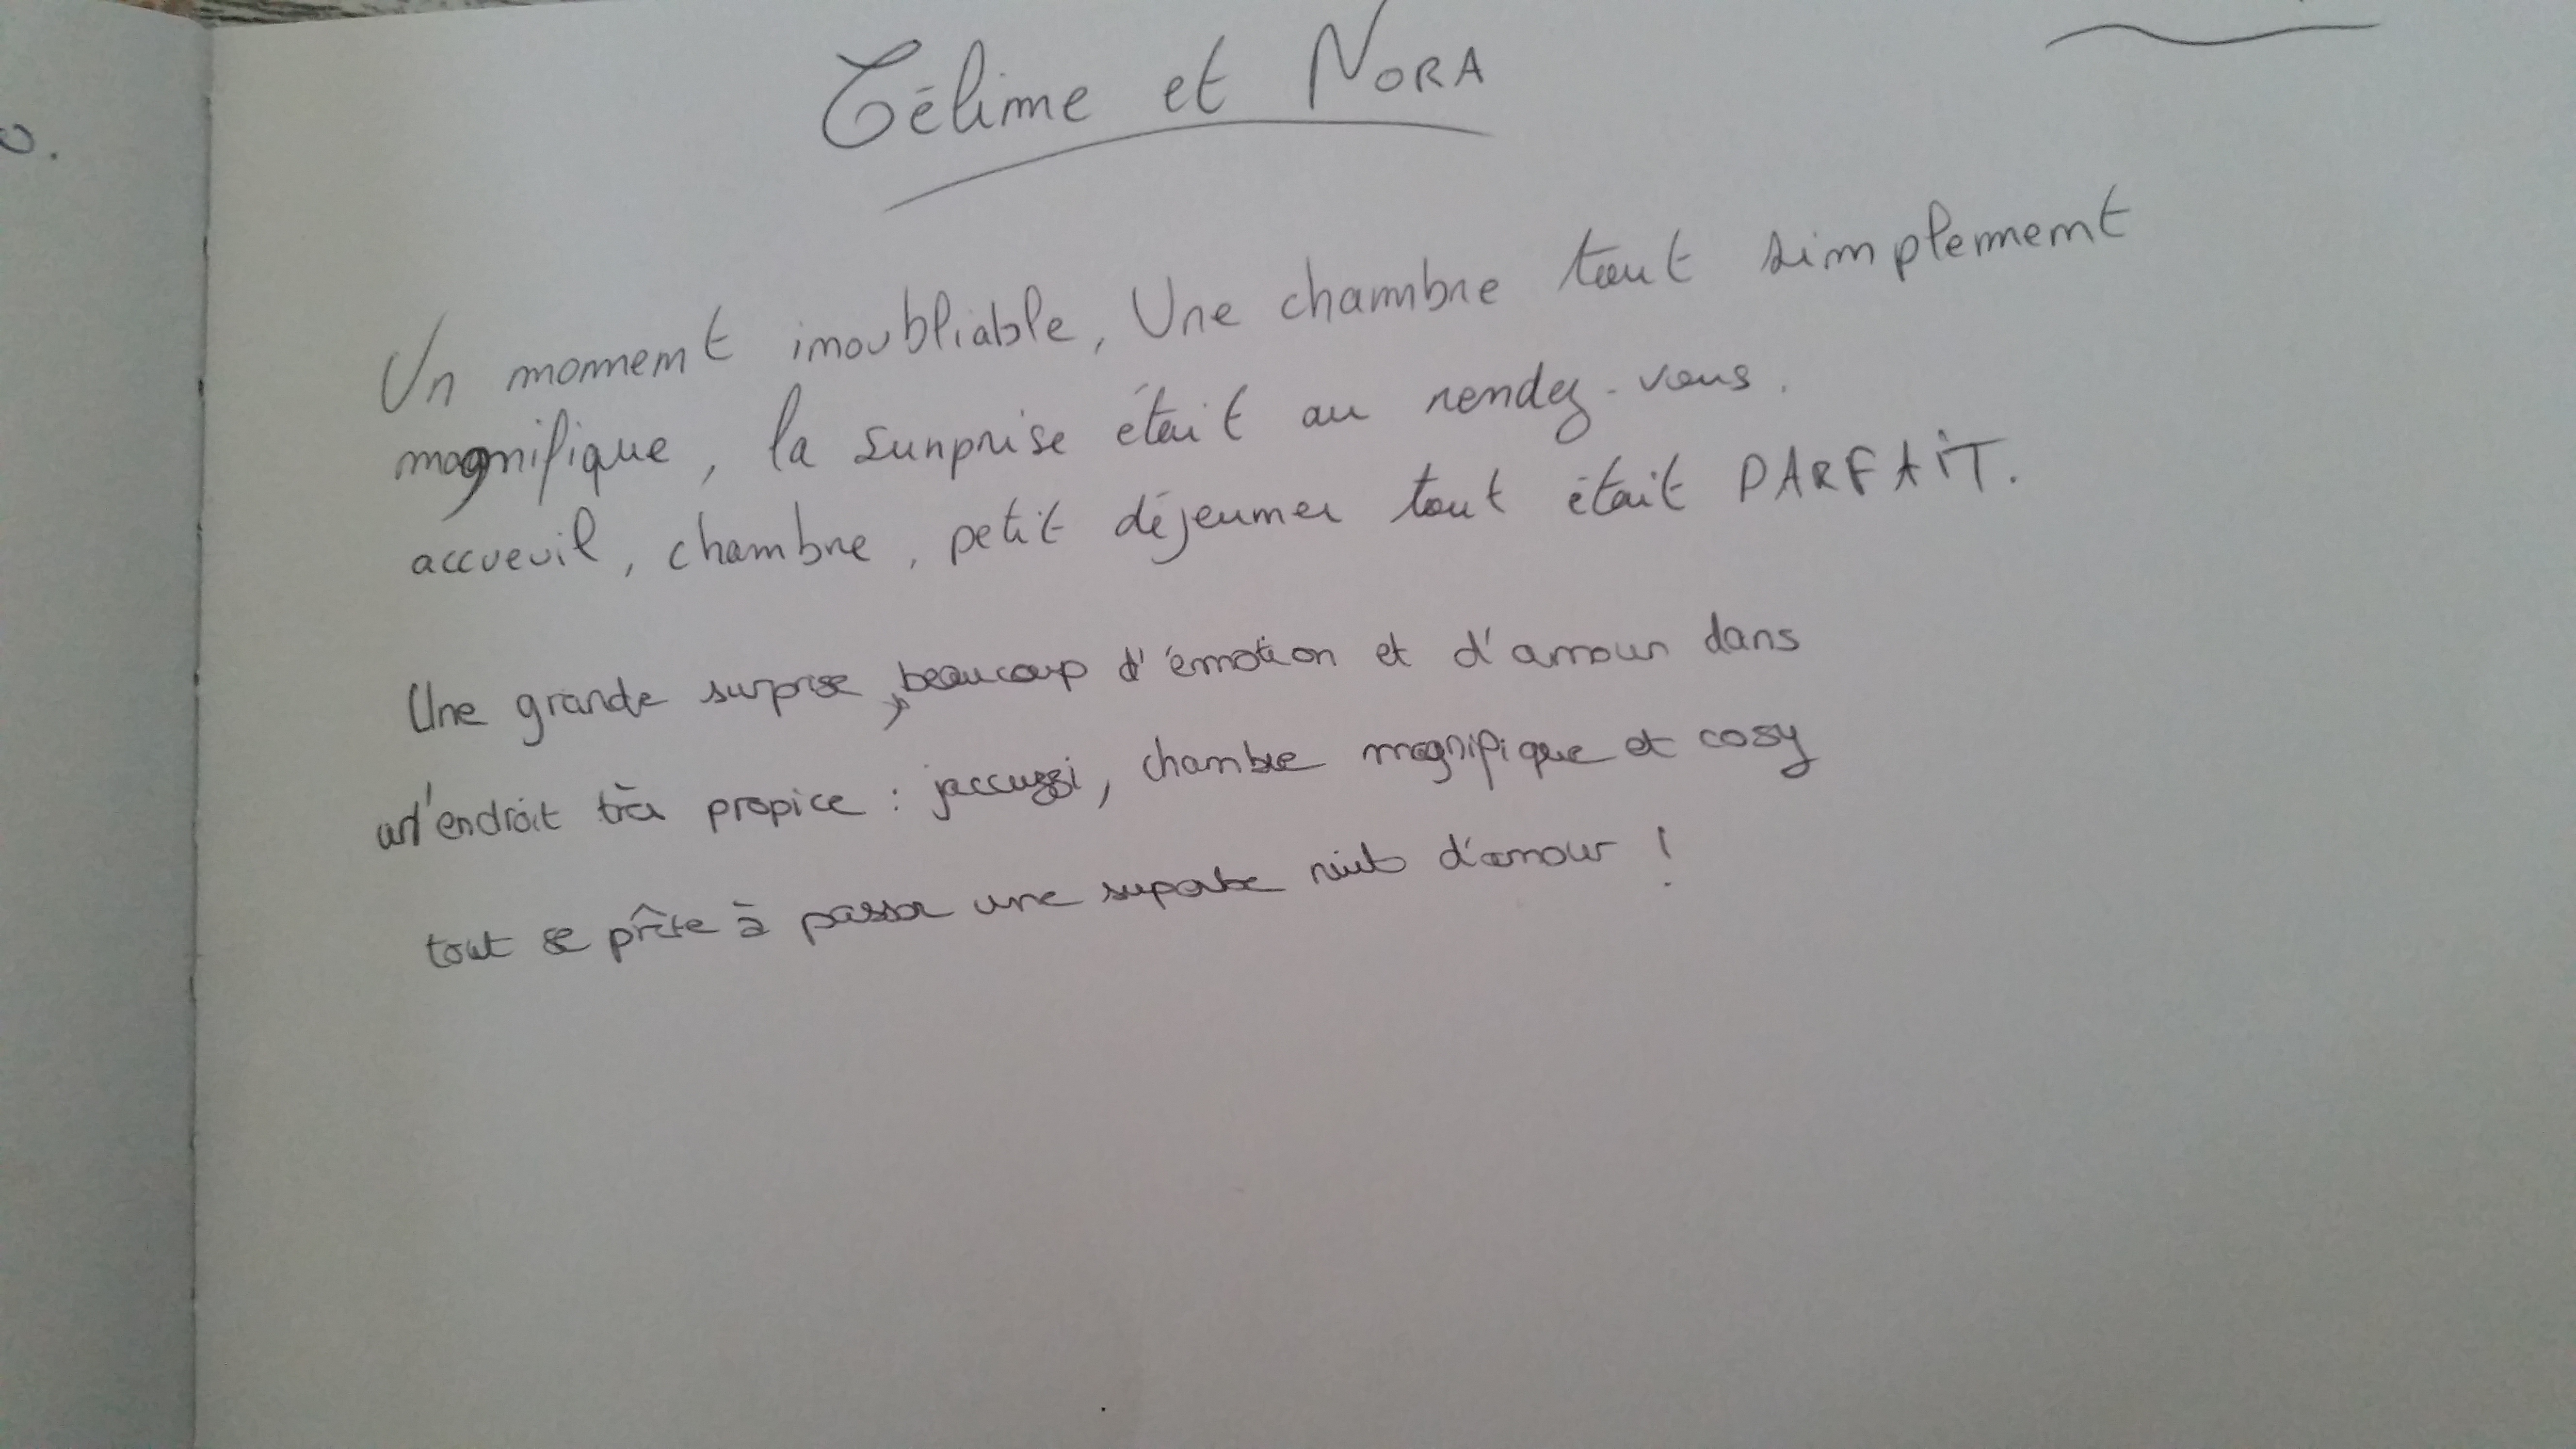 Céline et NORA
Un moment inoubliable, Une chambre tout simplement
magnifique, la surprise était au rendez-vous.
accueuil, chambre, petit déjeuner tout était PARFAiT.
Une grande surprise, beaucoup d'émotion et d'amour dans
un endroit très propice : jaccuzzi, chambre magnifique et cosy
tout se prête à passer une superbe nuit d'amour !